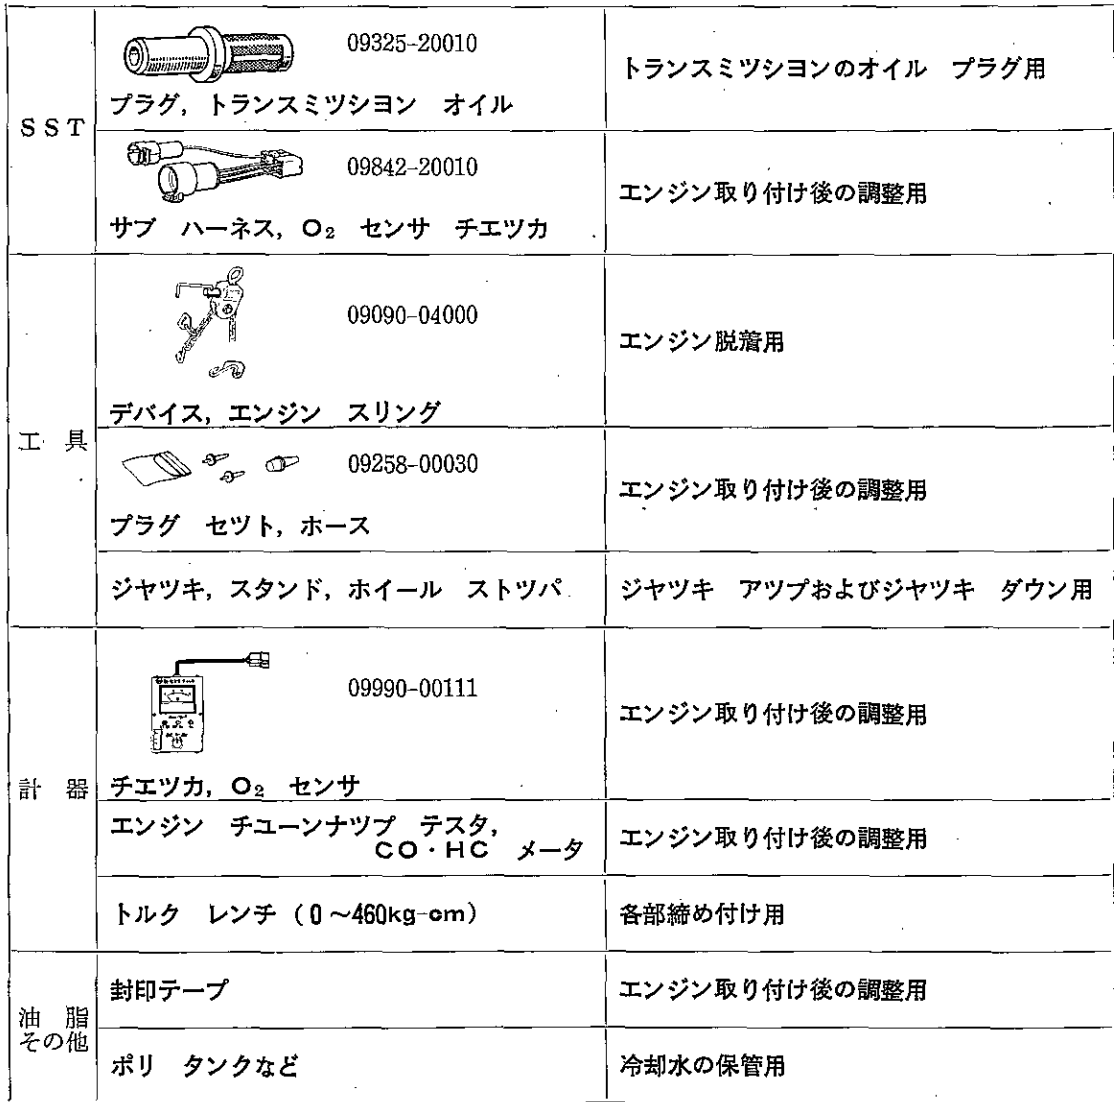 SST
09325-20010
プラグ，トランスミツシヨン　オイル
トランスミツシヨンのオイル　プラグ用
09842-20010
サブ　ハーネス，O₂　センサ　チエツカ
エンジン取り付け後の調整用
工　具
09090-04000
デバイス，エンジン　スリング
エンジン脱着用
09258-00030
プラグ　セツト，ホース
エンジン取り付け後の調整用
ジヤツキ，スタンド，ホイール　ストツパ
ジヤツキ　アツプおよびジヤツキ　ダウン用
計　器
09990-00111
チエツカ，O₂　センサ
エンジン取り付け後の調整用
エンジン　チユーンナツプ　テスタ，
CO・HC　メータ
エンジン取り付け後の調整用
トルク　レンチ（0～460kg-cm）
各部締め付け用
油　脂
その他
封印テープ
エンジン取り付け後の調整用
ポリ　タンクなど
冷却水の保管用